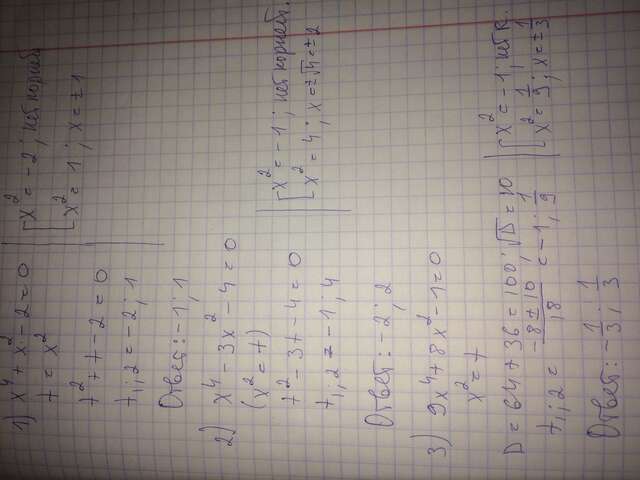 1) x⁴ + x² - 2 = 0
t = x²
t² + t - 2 = 0
t₁;₂ = -2; 1
[x² = -2; нет корней
[x² = 1; x = ±1
Ответ: -1; 1
2) x⁴ - 3x² - 4 = 0
(x² = t)
t² - 3t - 4 = 0
t₁;₂ = -1; 4
[x² = -1; нет корней.
[x² = 4; x = ±√4 = ±2
Ответ: -2; 2
3) 9x⁴ + 8x² - 1 = 0
x² = t
D = 64 + 36 = 100; √D = 10
t₁;₂ = (-8 ± 10)/18 = -1; 1/9
[x² = -1; нет к.
[x² = 1/9; x = ±1/3
Ответ: -1/3; 1/3